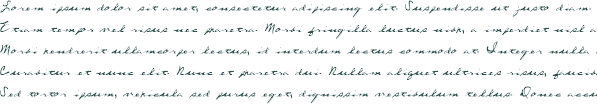 Lorem ipsum dolor sit amet, consectetur adipiscing elit. Suspendisse ut justo diam.
Etiam tempor vel risus nec pharetra. Morbi fringilla luctus nibh, a imperdiet nisl a
Morbi hendrerit ullamcorper lectus, id interdum lectus commodo at. Integer nulla
Curabitur et nunc elit. Nunc et pharetra dui. Nullam aliquet ultrices risus, faucib
Sed tortor ipsum, vehicula sed purus eget, dignissim vestibulum tellus. Donec accum